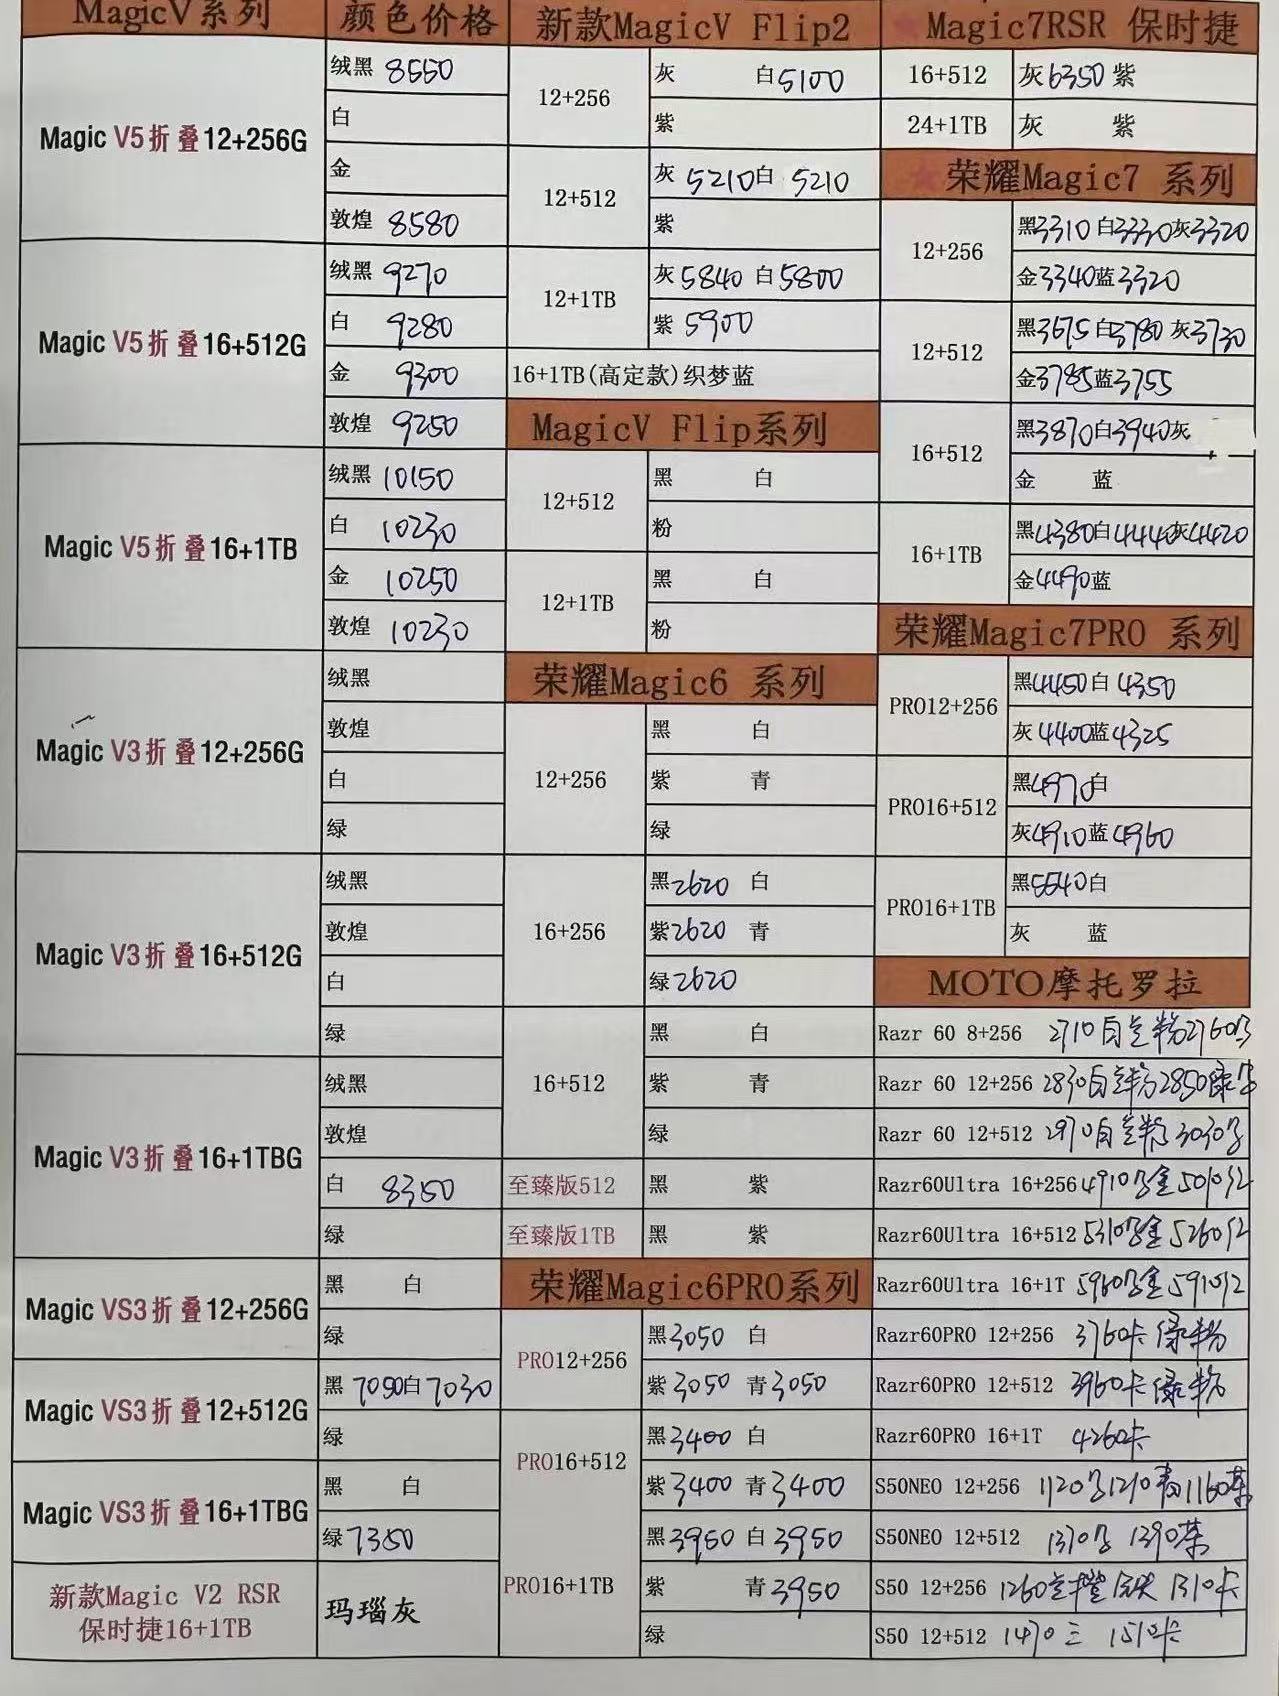 MagicV系列
颜色价格
Magic V5折叠12+256G
绒黑 8550
白
金
敦煌 8580
Magic V5折叠16+512G
绒黑 9270
白 9280
金 9300
敦煌 9250
Magic V5折叠16+1TB
绒黑 10150
白 10230
金 10250
敦煌 10230
Magic V3折叠12+256G
绒黑
敦煌
白
绿
Magic V3折叠16+512G
绒黑
敦煌
白
绿
Magic V3折叠16+1TBG
绒黑
敦煌
白 8350
绿
Magic VS3折叠12+256G
黑 白
绿
Magic VS3折叠12+512G
黑 7050白 7030
绿
Magic VS3折叠16+1TBG
黑 白
绿7350
新款Magic V2 RSR
保时捷16+1TB
玛瑙灰
新款MagicV Flip2
12+256
灰 白5100
紫
12+512
灰 5210白 5210
紫
12+1TB
灰5840 白5800
紫 5900
16+1TB(高定款)织梦蓝
MagicV Flip系列
12+512
黑 白
粉
12+1TB
黑 白
粉
荣耀Magic6 系列
12+256
黑 白
紫 青
绿
16+256
黑2620 白
紫2620 青
绿2620
16+512
黑 白
紫 青
绿
至臻版512
黑 紫
至臻版1TB
黑 紫
荣耀Magic6PRO系列
PRO12+256
黑3050 白
紫3050 青3050
PRO16+512
黑3400 白
紫3400 青3400
PRO16+1TB
黑3950 白3950
紫 青3950
绿
Magic7RSR 保时捷
16+512
灰6350 紫
24+1TB
灰 紫
荣耀Magic7 系列
12+256
黑3310 白3330灰3320
金3340蓝3320
12+512
黑3675白3780 灰3730
金3785蓝3755
16+512
黑3870白3940灰
金 蓝
16+1TB
黑4380白4440灰4420
金4490蓝
荣耀Magic7PRO 系列
PRO12+256
黑4450白 4350
灰 4400蓝4325
PRO16+512
黑4970白
灰4910蓝4960
PRO16+1TB
黑5540白
灰 蓝
MOTO摩托罗拉
Razr 60 8+256 2710 粉2760
Razr 60 12+256 2830 粉2850绿
Razr 60 12+512 2970 粉3030
Razr60Ultra 16+256 4910 金5010红
Razr60Ultra 16+512 5310 金5260红
Razr60Ultra 16+1T 5960 金5910红
Razr60PRO 12+256 3760卡 绿粉
Razr60PRO 12+512 3960卡绿粉
Razr60PRO 16+1T 4260卡
S50NEO 12+256 1120 1210青1160茶
S50NEO 12+512 1370 1390茶
S50 12+256 1260 1310卡
S50 12+512 1470 1510卡